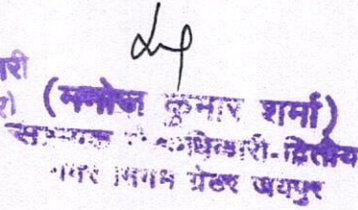 री
र) (मनोज कुमार शर्मा)
द्वितीय
नगर निगम ग्रेटर जयपुर